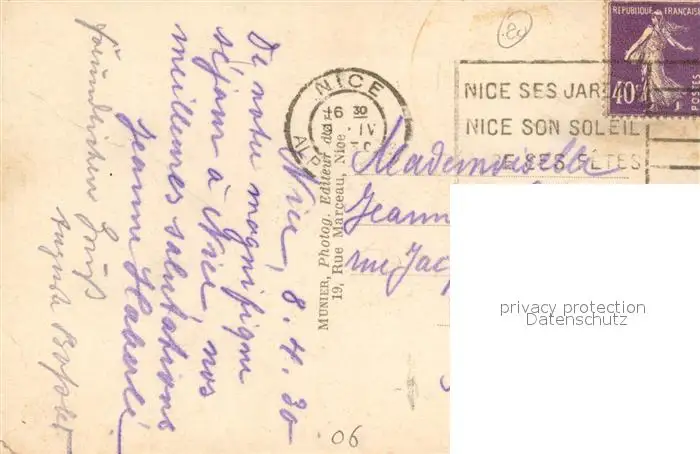 Nice, 8.4.30
De notre magnifique
séjour à Nice nos
meilleures salutations
Jeanne Haberli
freundlichen Gruß
August
MUNIER, Photog. Editeur
19, Rue Marceau, Nice
NICE
16 30
IV
ALP
80
REPUBLIQUE FRANÇAISE
40c
POSTES
NICE SES JAR
NICE SON SOLEIL
E SES FÊTES
Mademoiselle
Jeann
rue Jacq
privacy protection
Datenschutz
06